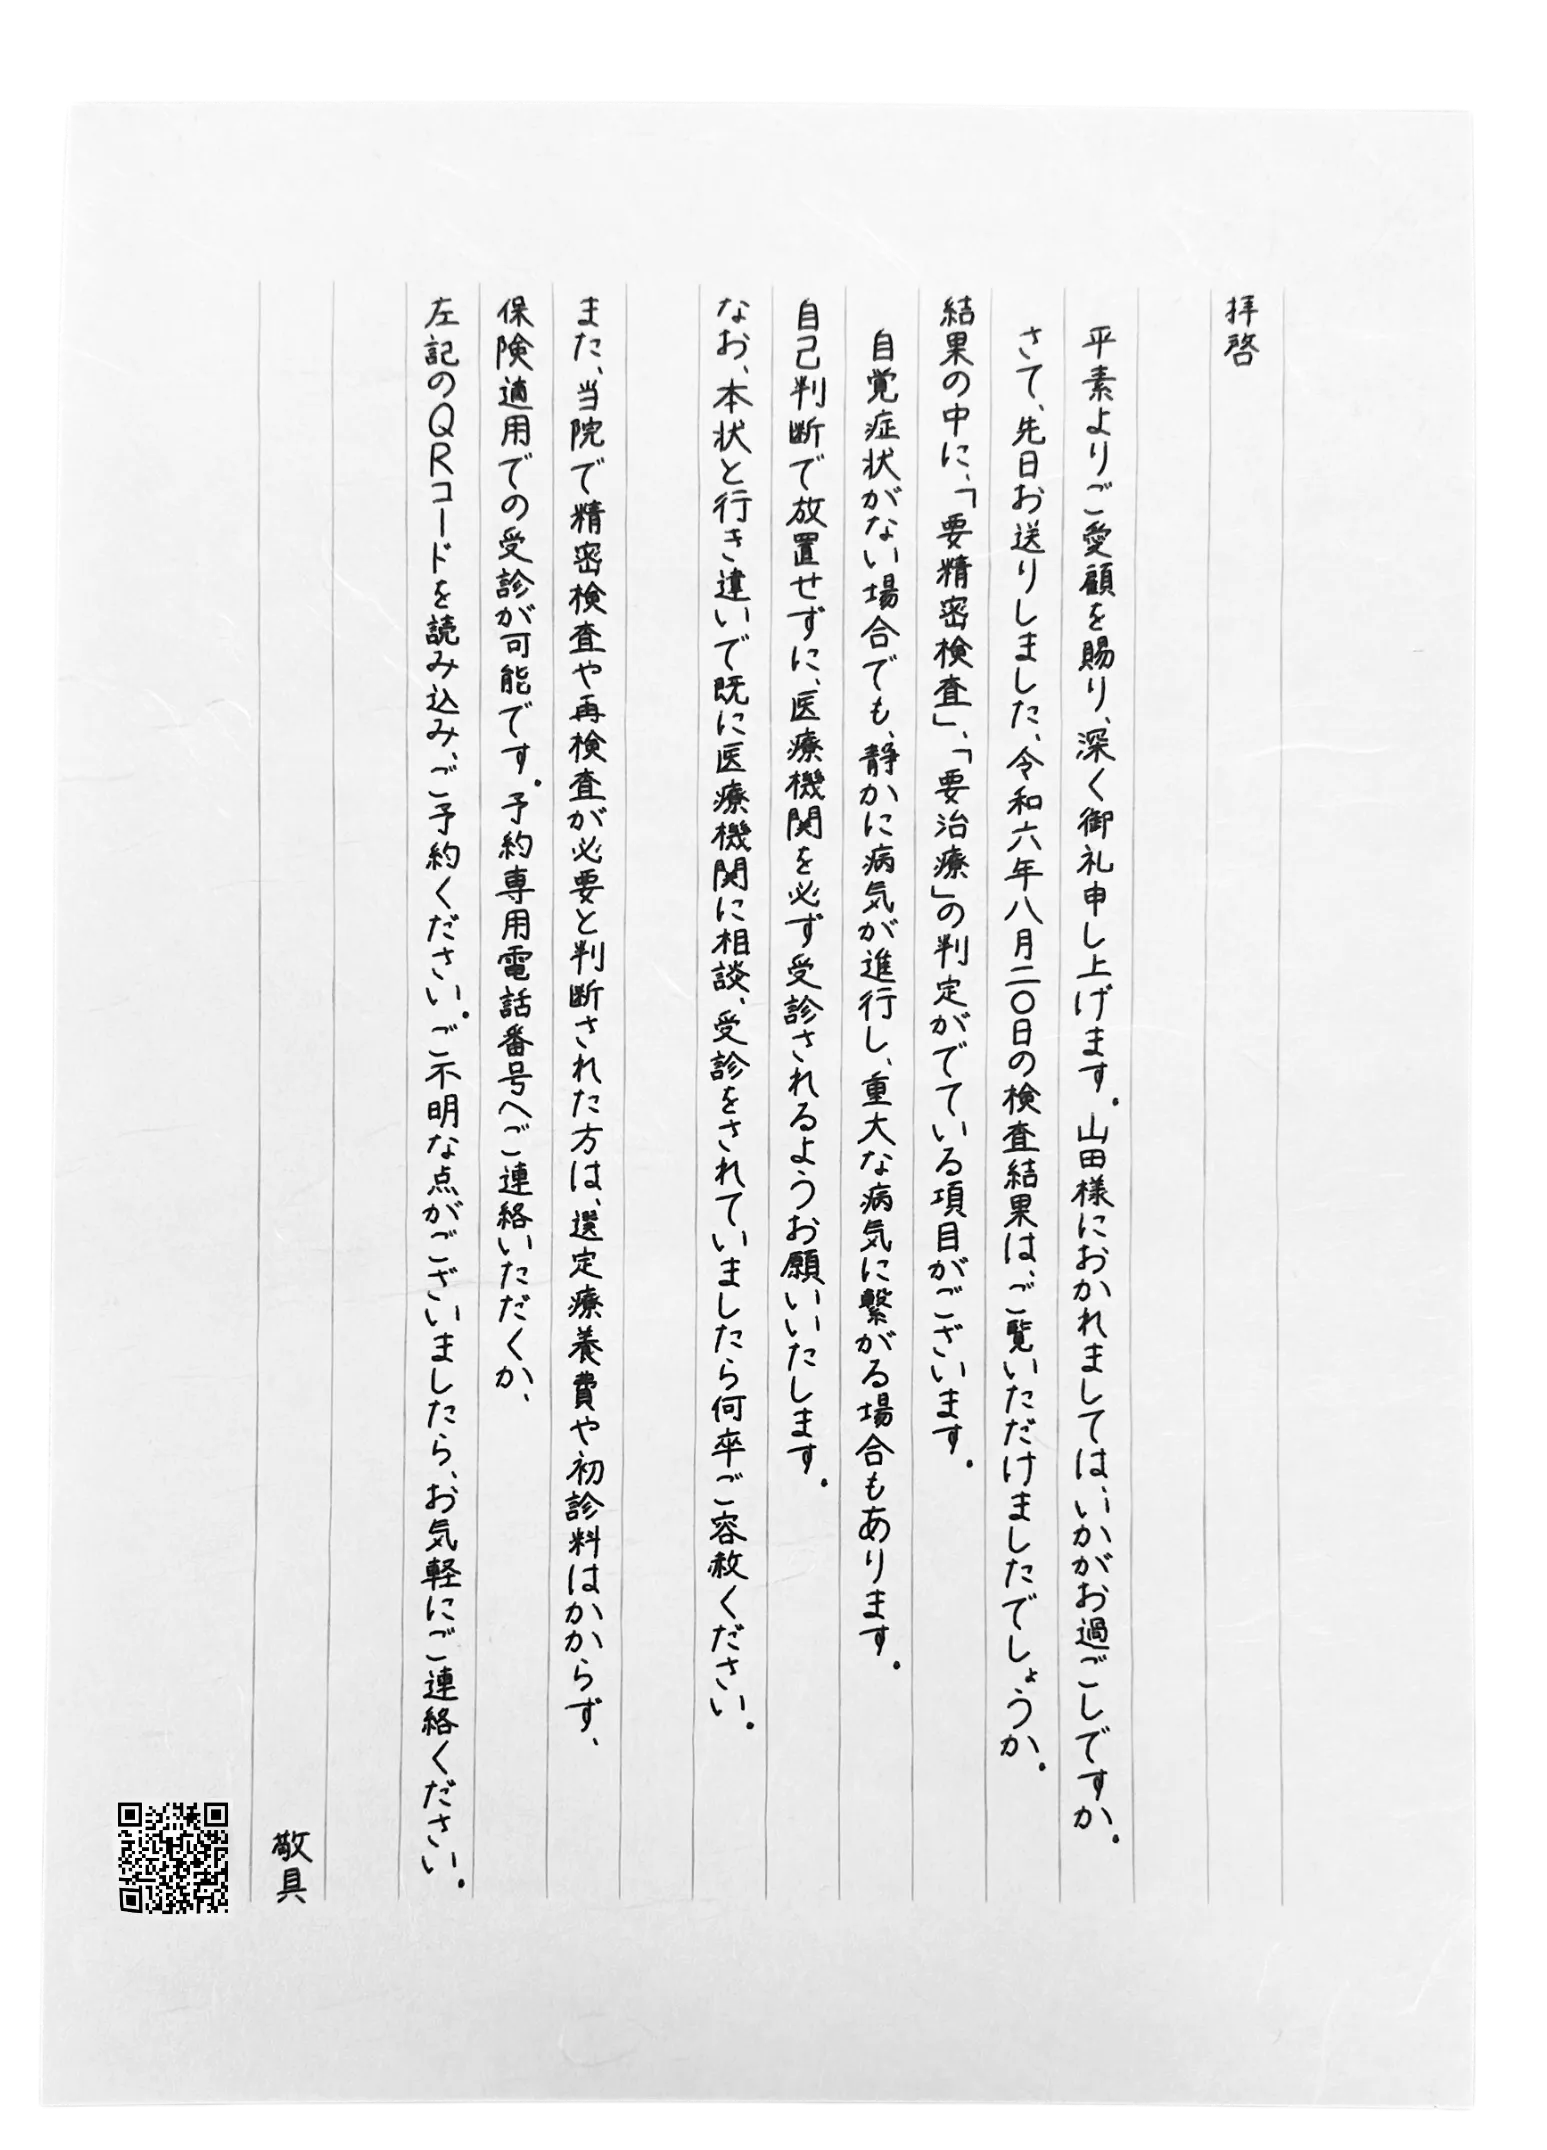 拝啓
平素よりご愛顧を賜り、深く御礼申し上げます。山田様におかれましては、いかがお過ごしですか。
さて、先日お送りしました、令和六年八月二〇日の検査結果は、ご覧いただけましたでしょうか。
結果の中に、「要精密検査」、「要治療」の判定がでている項目がございます。
自覚症状がない場合でも、静かに病気が進行し、重大な病気に繋がる場合もあります。
自己判断で放置せずに、医療機関を必ず受診されるようお願いいたします。
なお、本状と行き違いで既に医療機関に相談、受診をされていましたら何卒ご容赦ください。
また、当院で精密検査や再検査が必要と判断された方は、選定療養費や初診料はかからず、
保険適用での受診が可能です。予約専用電話番号へご連絡いただくか、
左記のQRコードを読み込み、ご予約ください。ご不明な点がございましたら、お気軽にご連絡ください。
敬具